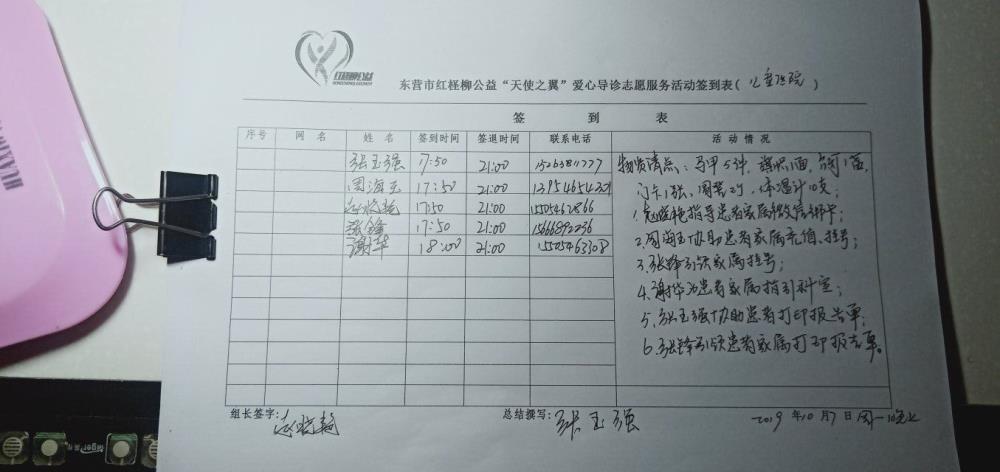 红柽柳公益
东营市红柽柳公益“天使之翼”爱心导诊志愿服务活动签到表(儿童医院)
签 到 表
序号 网 名 姓 名 签到时间 签退时间 联系电话 活 动 情 况
张玉强 17:50 21:00 15263811777 物资清点：马甲5件，旗帜1面，
周海玉 17:50 21:00 门卡1张、
赵晓艳 17:50 21:00 15505462866 1.赵晓艳指导患者家属微信绑卡；
张锋 17:50 21:00 15666892296 2.周海玉协助患者家属充值、挂号；
谢华 18:00 21:00 15505463308 3.张锋引领家属挂号；
4.谢华为患者家属指引科室；
5.张玉强协助患者打印报告单；
6.张锋引领患者家属打印报告单。
组长签字：赵晓艳 总结撰写：张玉强 2019年10月7日周一晚上